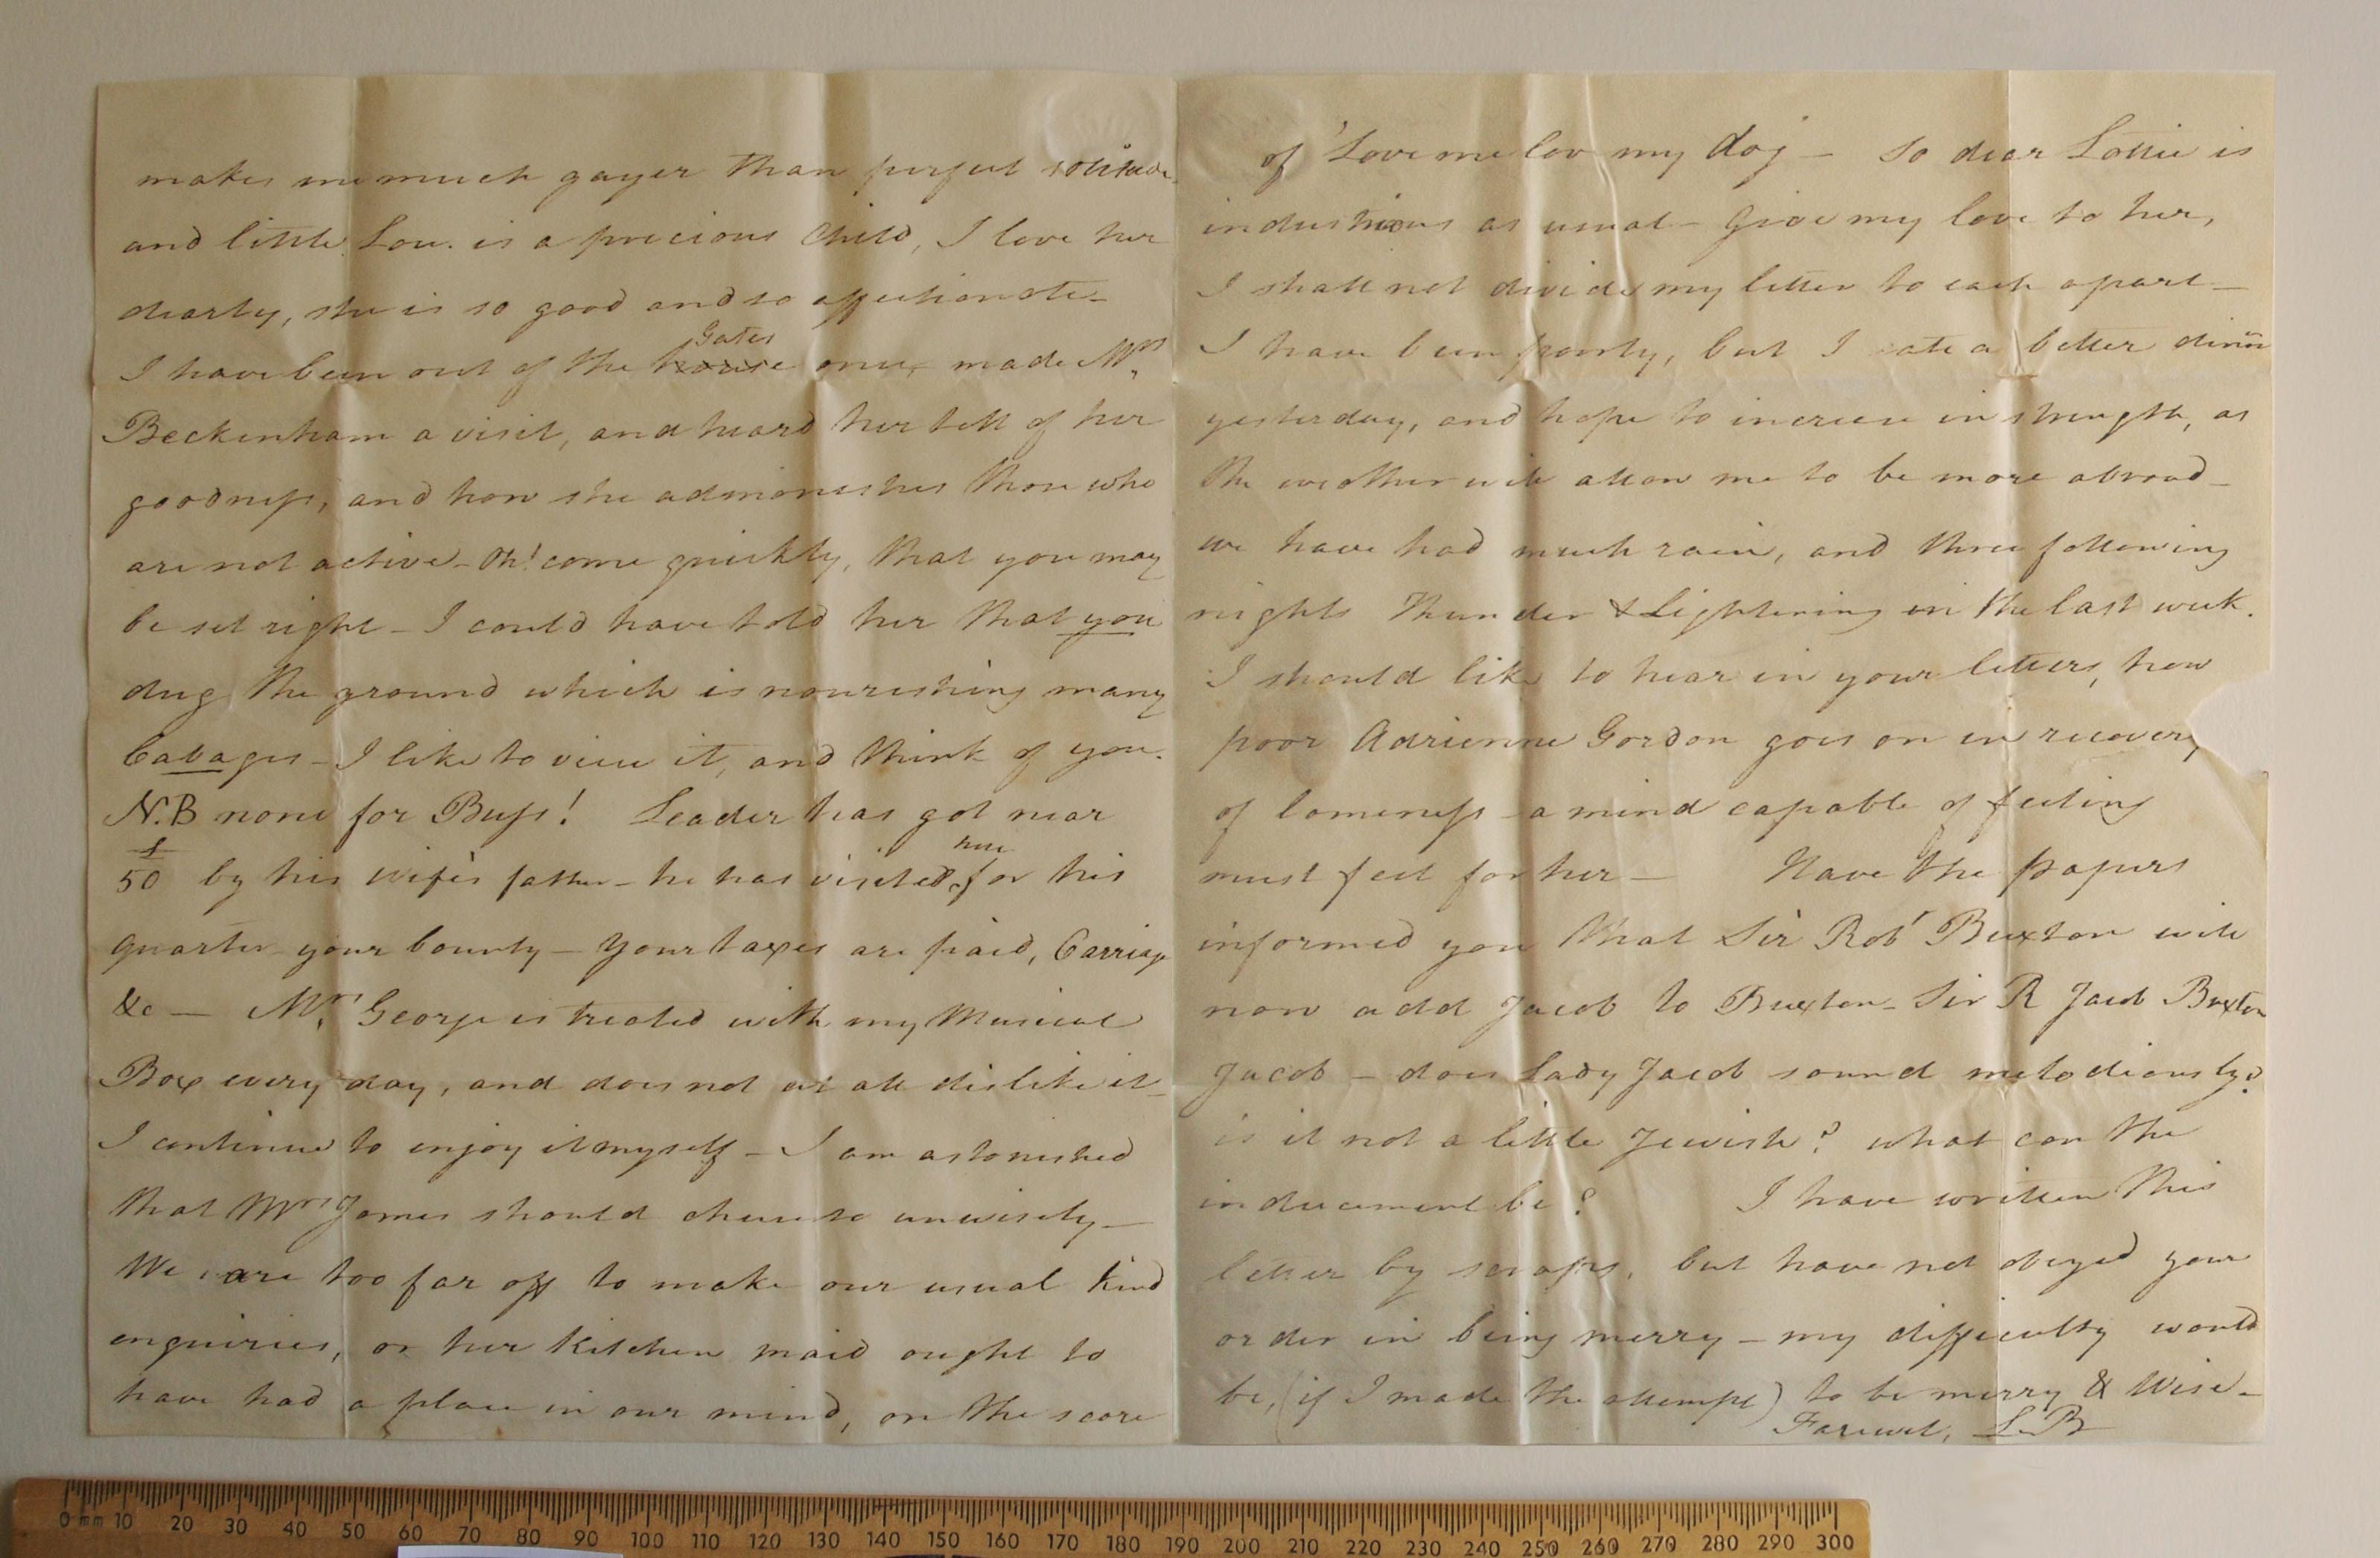 makes me much gayer than perfect solitude.
and little Lou. is a precious Child, I love her
dearly, she is so good and so affectionate_
Gates
I have been out of the house once, made Mrs
Beckenham a visit, and heard her tell of her
goodness, and how she admonishes those who
are not active_ Oh! come quickly, that you may
be set right_ I could have told her that you
dug the ground which is nourishing many
Cabages_ I like to view it, and think of you.
N.B none for Buss! Leader has got near
£
here
50 by his wife's father_ he has visited for his
quarter your bounty_ Your taxes are paid, Carriage
&c_ Mr George is treated with my Musical
Box every day, and does not at all dislike it_
I continue to enjoy it myself_ I am astonished
that Mrs James should chuse so unwisely_
We are too far off to make our usual kind
enquiries, or her Kitchen maid ought to
have had a place in our mind, on the score
of 'Love me lov my dog_ So dear Lottie is
industrious as usual_ Give my love to her,
I shall not divide my letter to each apart_
I have been poorly, but I ate a better dinnr
yesterday, and hope to increase in strength, as
the weather will allow me to be more abroad_
we have had much rain, and three following
nights Thunder & Lightening in the last week.
I should like to hear in your letters, how
poor Adrienne Gordon goes on in recovery
of lameness_ a mind capable of feeling
must feel for her_ Have the papers
informed you that Sir Robt Buxton will
now add Jacob to Buxton_ Sir R Jacob Buxton
Jacob_ does Lady Jacob sound melodiously?
is it not a little Jewish? what can the
inducement be? I have written this
letter by scraps, but have not obeyed your
order in being merry_ my difficulty would
be, (if I made the attempt) to be merry & Wise_
Farewel, L.B
0 mm 10 20 30 40 50 60 70 80 90 100 110 120 130 140 150 160 170 180 190 200 210 220 230 240 250 260 270 280 290 300